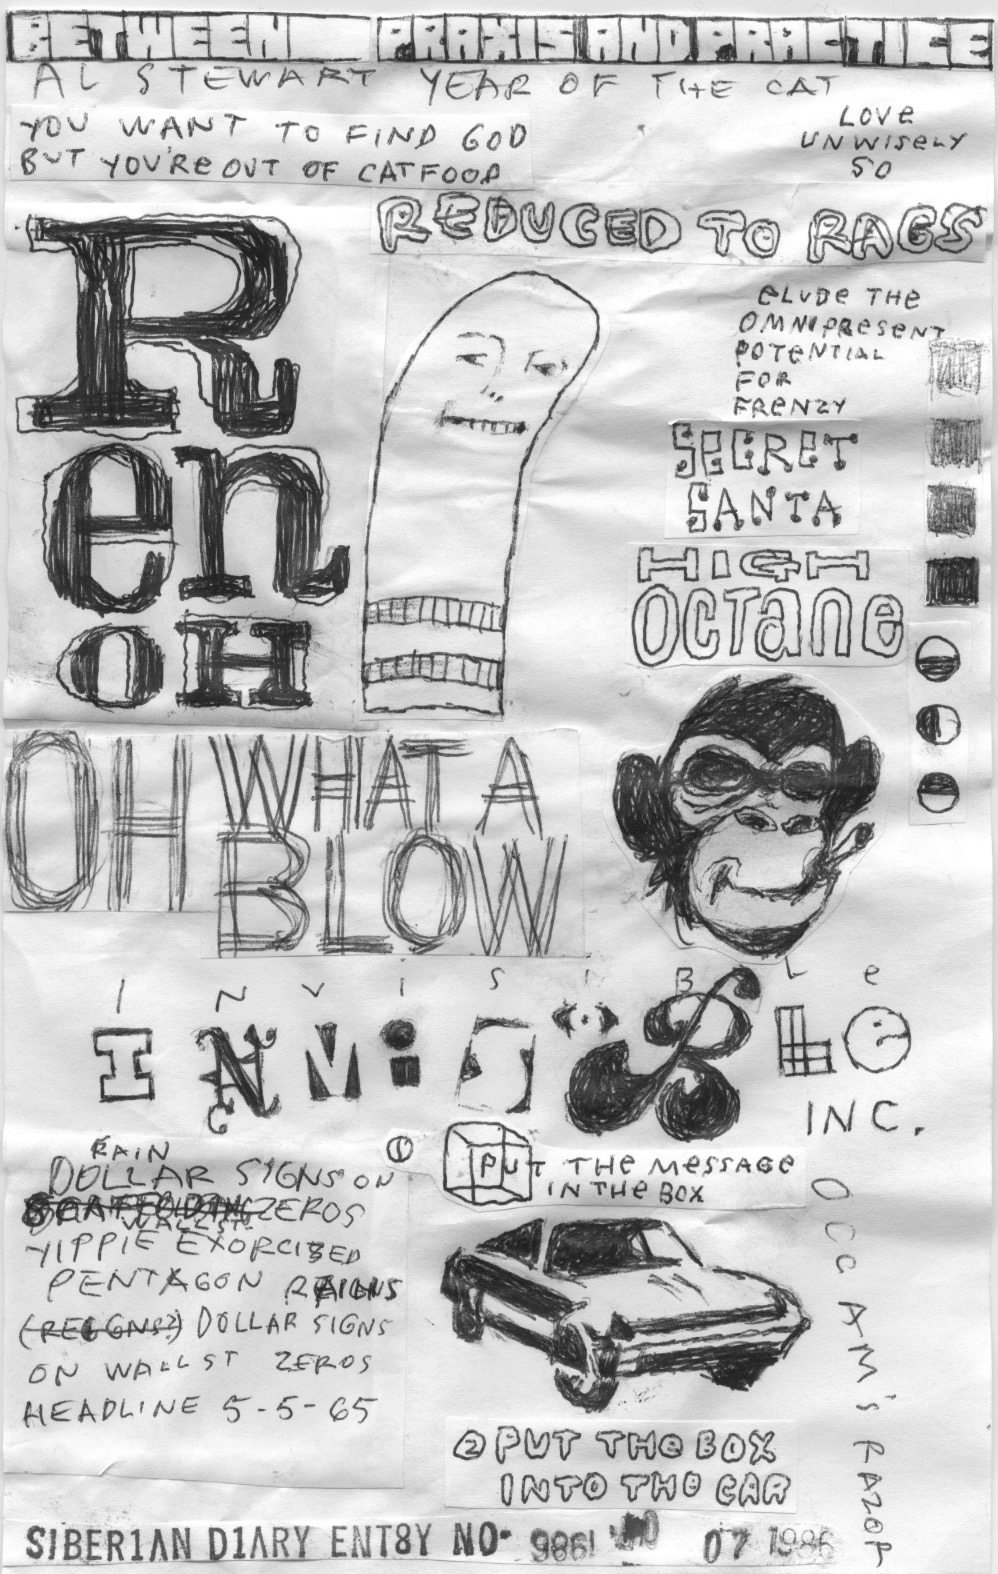 BETWEEN PRAXIS AND PRACTICE
AL STEWART YEAR OF THE CAT
YOU WANT TO FIND GOD
BUT YOU'RE OUT OF CATFOOD
LOVE
UNWISELY
SO
REDUCED TO RAGS
Ren
OH
ELUDE THE
OMNIPRESENT
POTENTIAL
FOR
FRENZY
SECRET
SANTA
HIGH
OCTANE
OH WHAT A
BLOW
INViSIBLe
INViS
B
INC.
RAIN
DOLLAR SIGNS ON
WALL ST. ZEROS
YIPPIE EXORCISED
PENTAGON RAINS
(REIGNS?) DOLLAR SIGNS
ON WALL ST ZEROS
HEADLINE 5-5-65
1 PUT THE MESSAGE
IN THE BOX
2 PUT THE BOX
INTO THE CAR
OCCAM'S RAZOR
SIBER1AN D1ARY ENT8Y NO. 07 1986